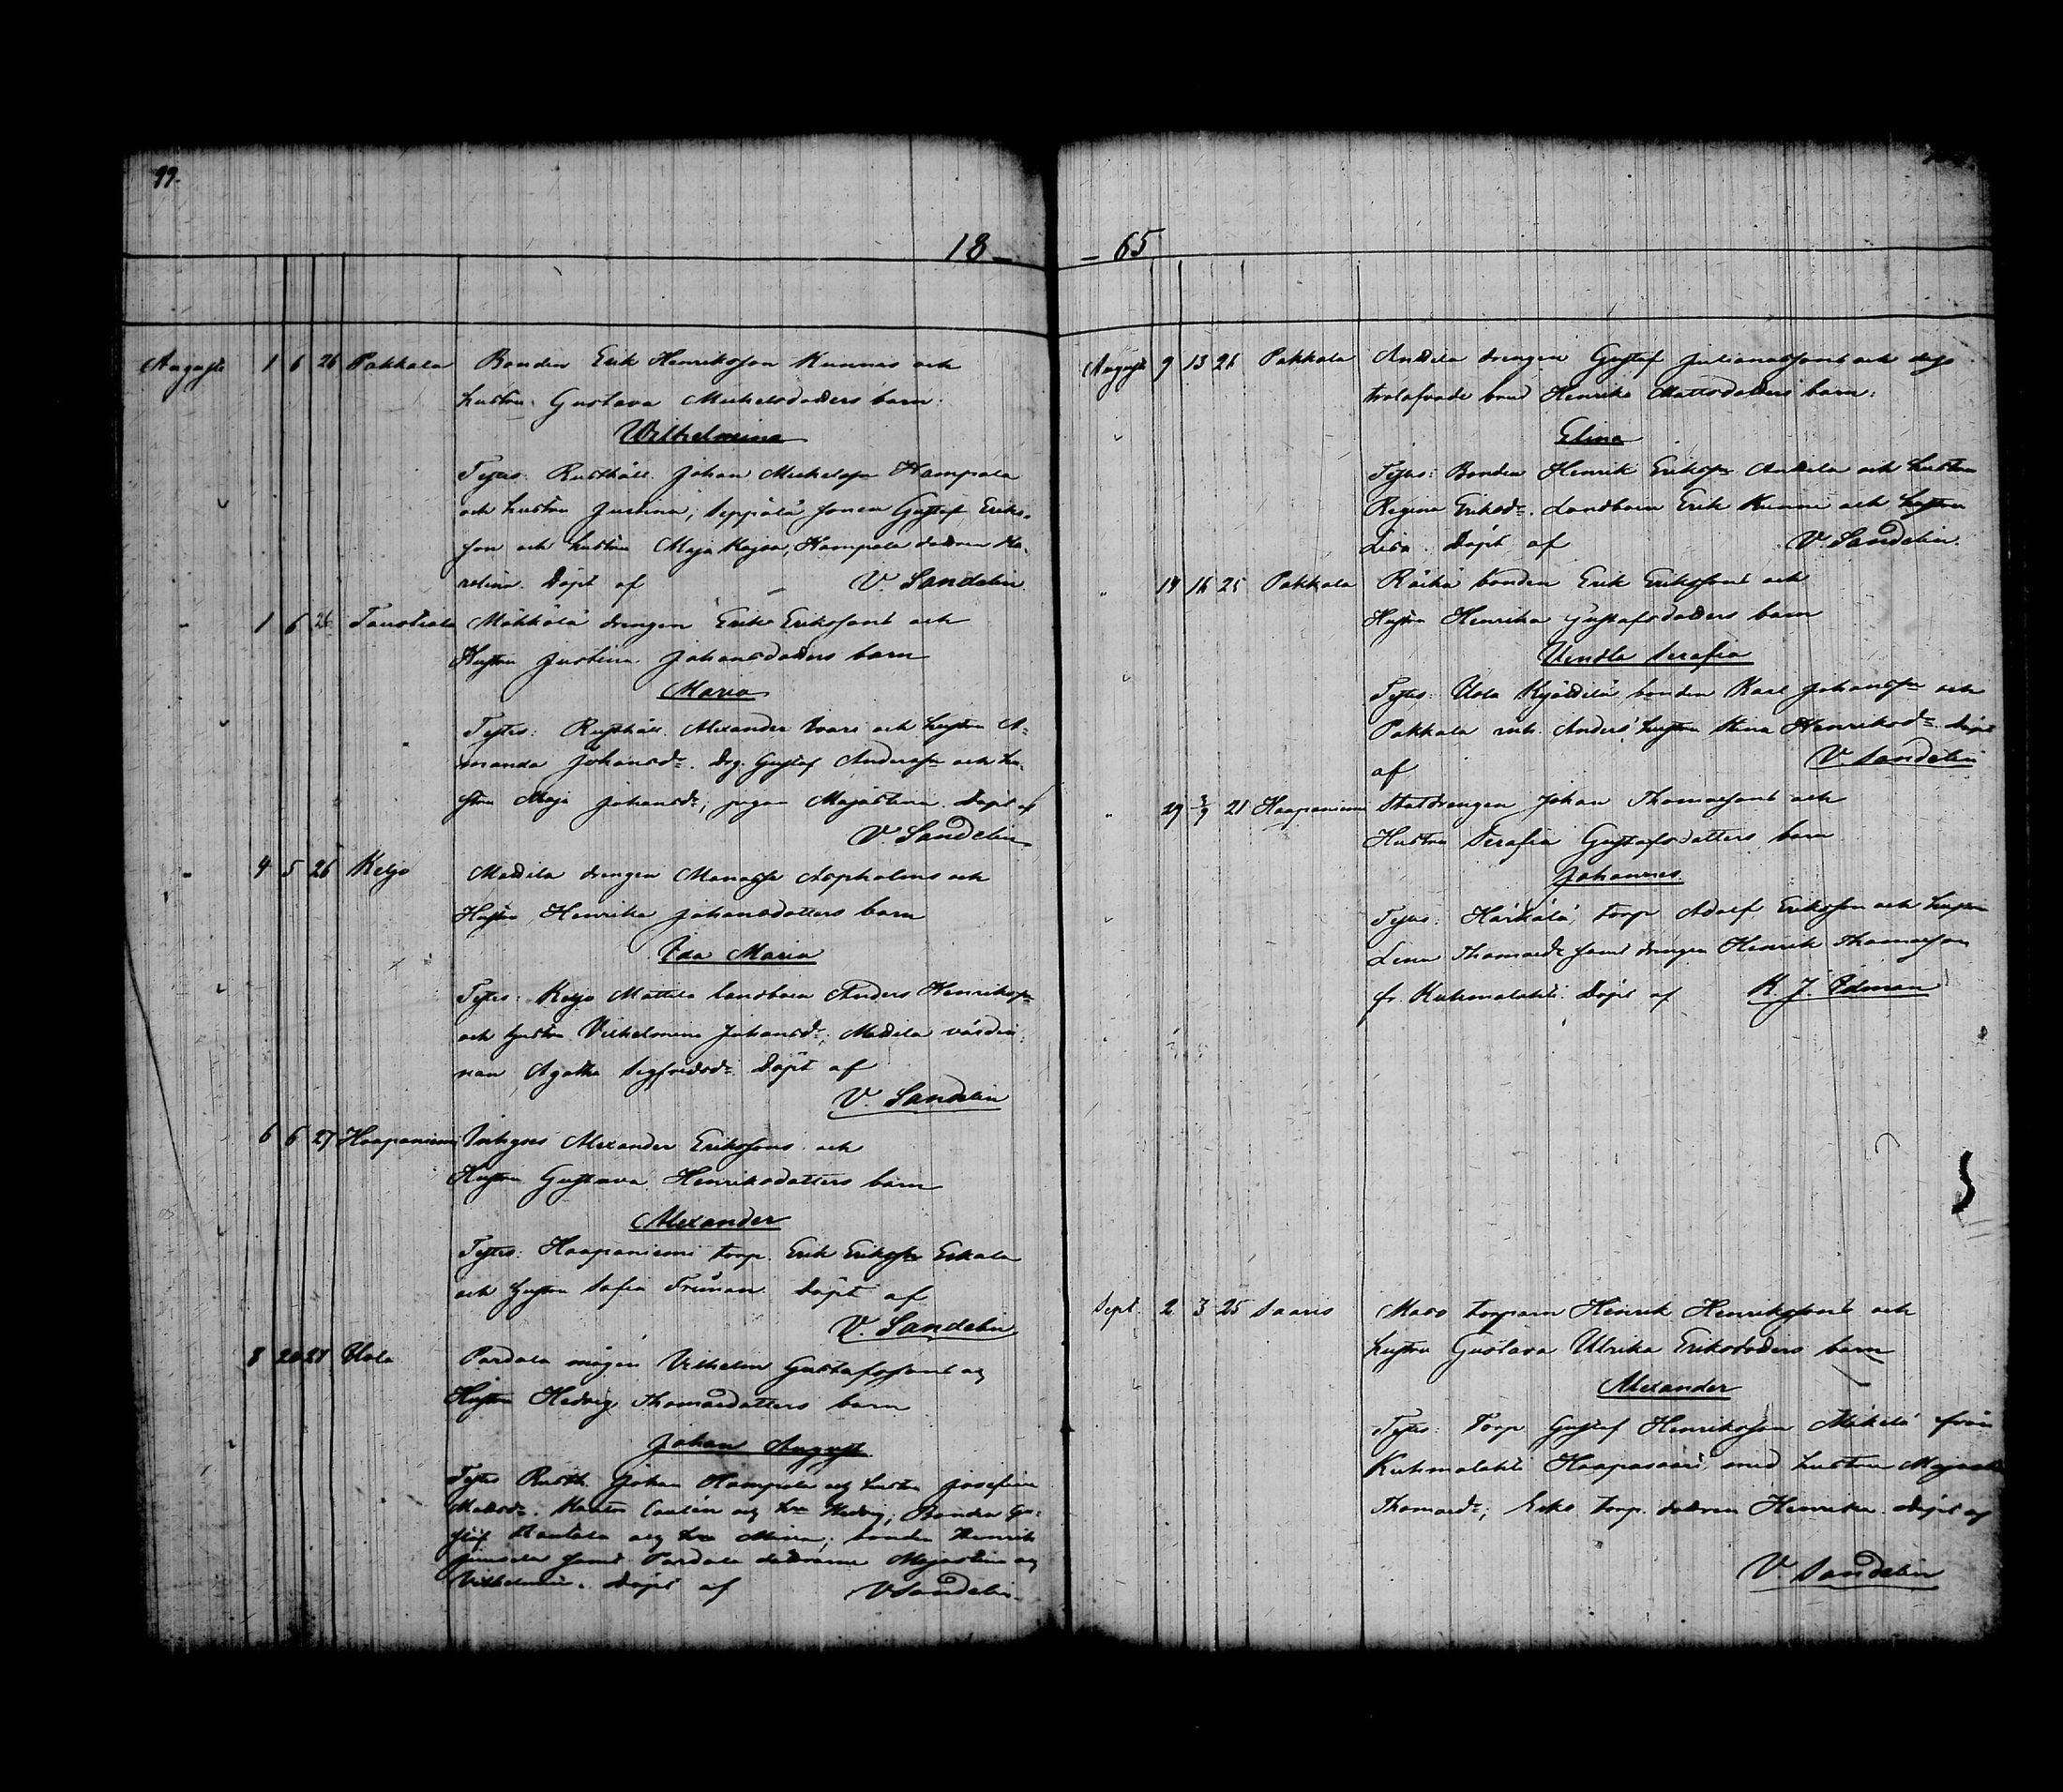 99.
18
Augusti 1 6 26 Pakkala Bonden Erik Henriksson Kunnas och
hustru Gustava Michelsdotters barn:
Wilhelmina
Testes: Rusthåll. Johan Michelsson Hampola
och hustru Justina, Seppälä sonen Gustaf Eriks-
son och hustru Maja Kajsa, Hampola dottren Ka-
rolina. Döpt af V. Sandelin.
1 6 26 Taustiala Mäkkälä drengen Erik Erikssons och
Hustru Justina Johansdotters barn
Maria
Testes: Rusthåll. Alexander Uvari och hustru A-
manda Johansdr. Drg. Gustaf Andersson och hu-
stru Maja Johansdr, pigan Majastina. Döpt af
V. Sandelin
4 5 26 Keljo Mattila drengen Manasse Aspholms och
Hustru Henrika Johansdotters barn
Ida Maria
Testes: Keljo Mattila landboen Anders Henriksson
och hustru Vilhelmina Johansdr, Mattila värdin-
nan Agatha Sigfridsdr. Döpt af
V. Sandelin
6 6 27 Haapaniemi Inhyses Alexander Erikssons och
Hustru Gustava Henriksdotters barn
Alexander
Testes: Haapaniemi torp. Erik Eriksson Eskola
och hustru Sofia Friman. Döpt af
V. Sandelin
8 20 27 Uola Pardala mågen Vilhelm Gustafssons och
Hustru Hedvig Thomasdotters barn
Johan August
Testes Rusth. Johan Hampola och hustru Josefina
Mattsdr. Kantor Caulén och hru Hedvig, Bonden Gu-
staf Rautala och hru Mina, bonden Henrik
Junsela samt Pardala döttrarne Majastina och
Vilhelmina. Döpt af V Sandelin.
65
Augusti 9 13 26 Pakkala Anttila drengen Gustaf Julianassons och dess
trolofvade brud Henrika Mattsdotters barn:
Elina
Testes: Bonden Henrik Eriksson Anttila och hustru
Regina Eriksdr. Landboen Erik Kunni och hustru
Lisa. Döpt af V. Sandelin.
" 14 16 25 Pakkala Räikä bonden Erik Erikssons och
Hustru Henrika Gustafsdotters barn
Vendla Serafia
Testes: Uola Kyättilä bonden Karl Johansson och
Pakkala inh. Anders hustru Stina Henriksdr. Döpt
af V. Sandelin
" 29 3/9 21 Haapaniemi Statdrengen Johan Thomassons och
Hustru Serafia Gustafsdotters barn
Johannes
Testes: Härkälä torp Adolf Eriksson och hustru
Lena Thomasdr samt drengen Henrik Thomasson
fr. Kuhmalahti. Döpt af K. J. Idman
Sept. 2 3 25 Saaris Maso torparen Henrik Henrikssons och
hustru Gustava Ulrika Eriksdotters barn
Alexander
Testes: Torp Gustaf Henriksson Mäkelä från
Kuhmalahti Haapasaari med hustru Majastina
Thomasdr, Esko torp. dottren Henrika. Döpt af
V Sandelin